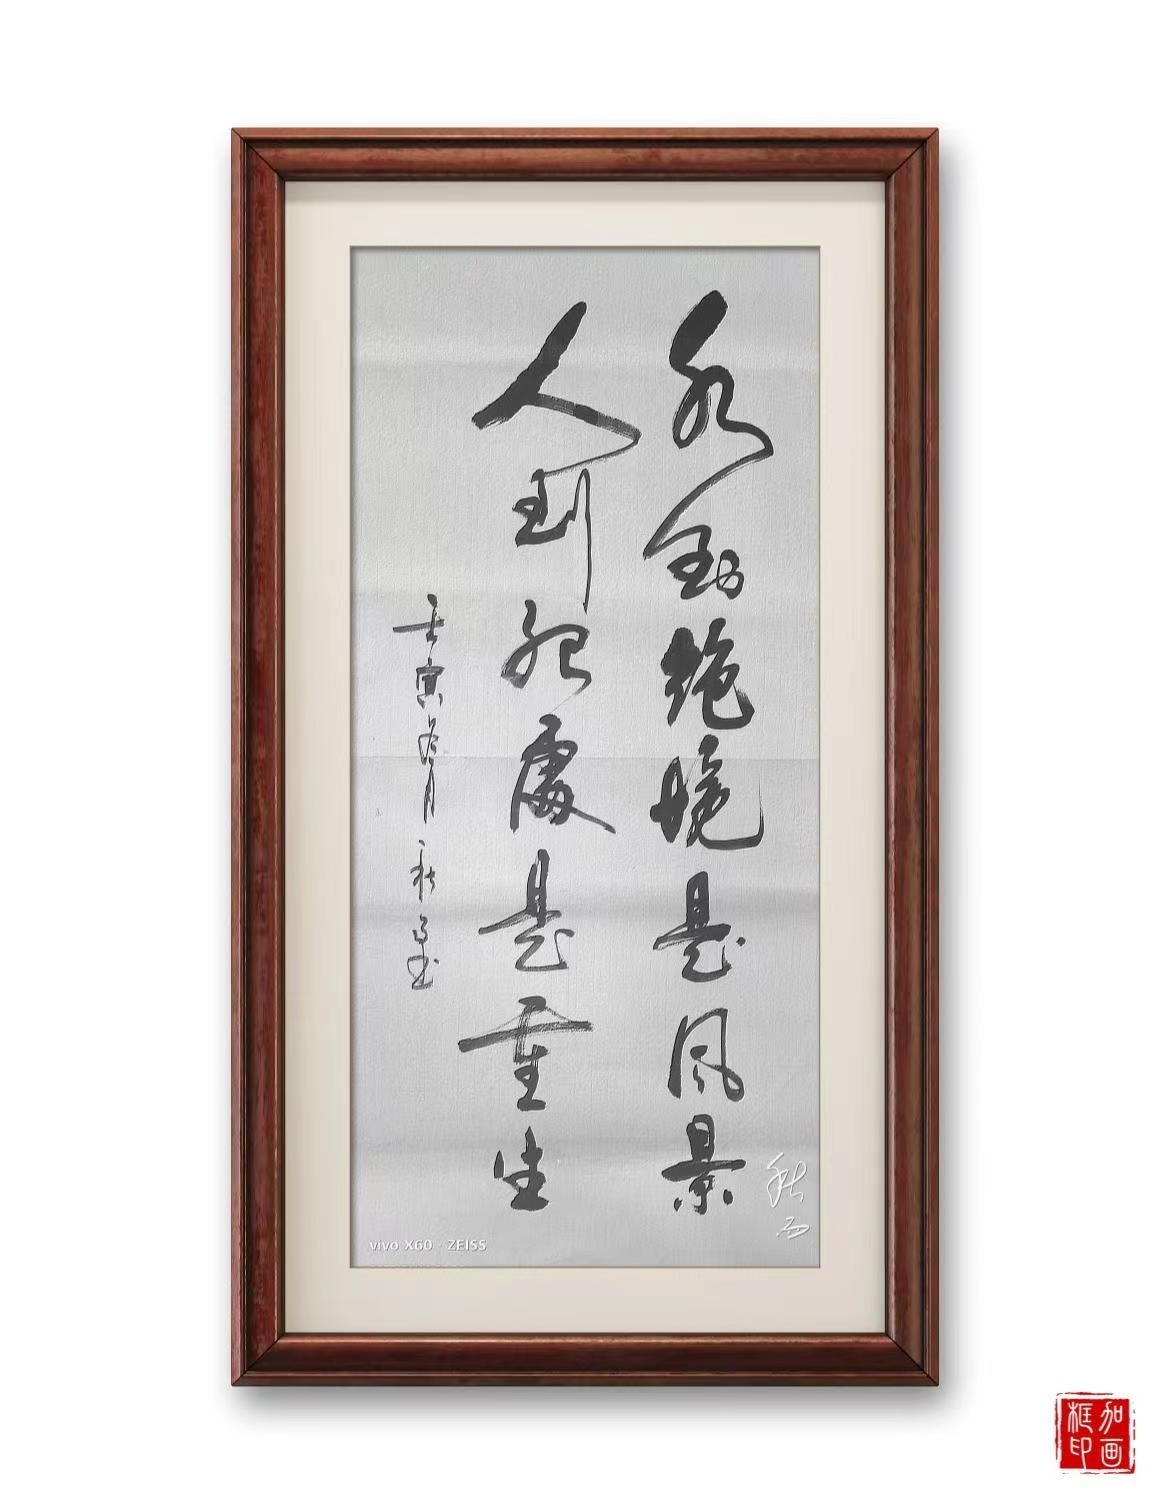 水到绝境是風景
人到絕處是重生
壬寅冬月 秋
秋
vivo X60 · ZEISS
加画
框印